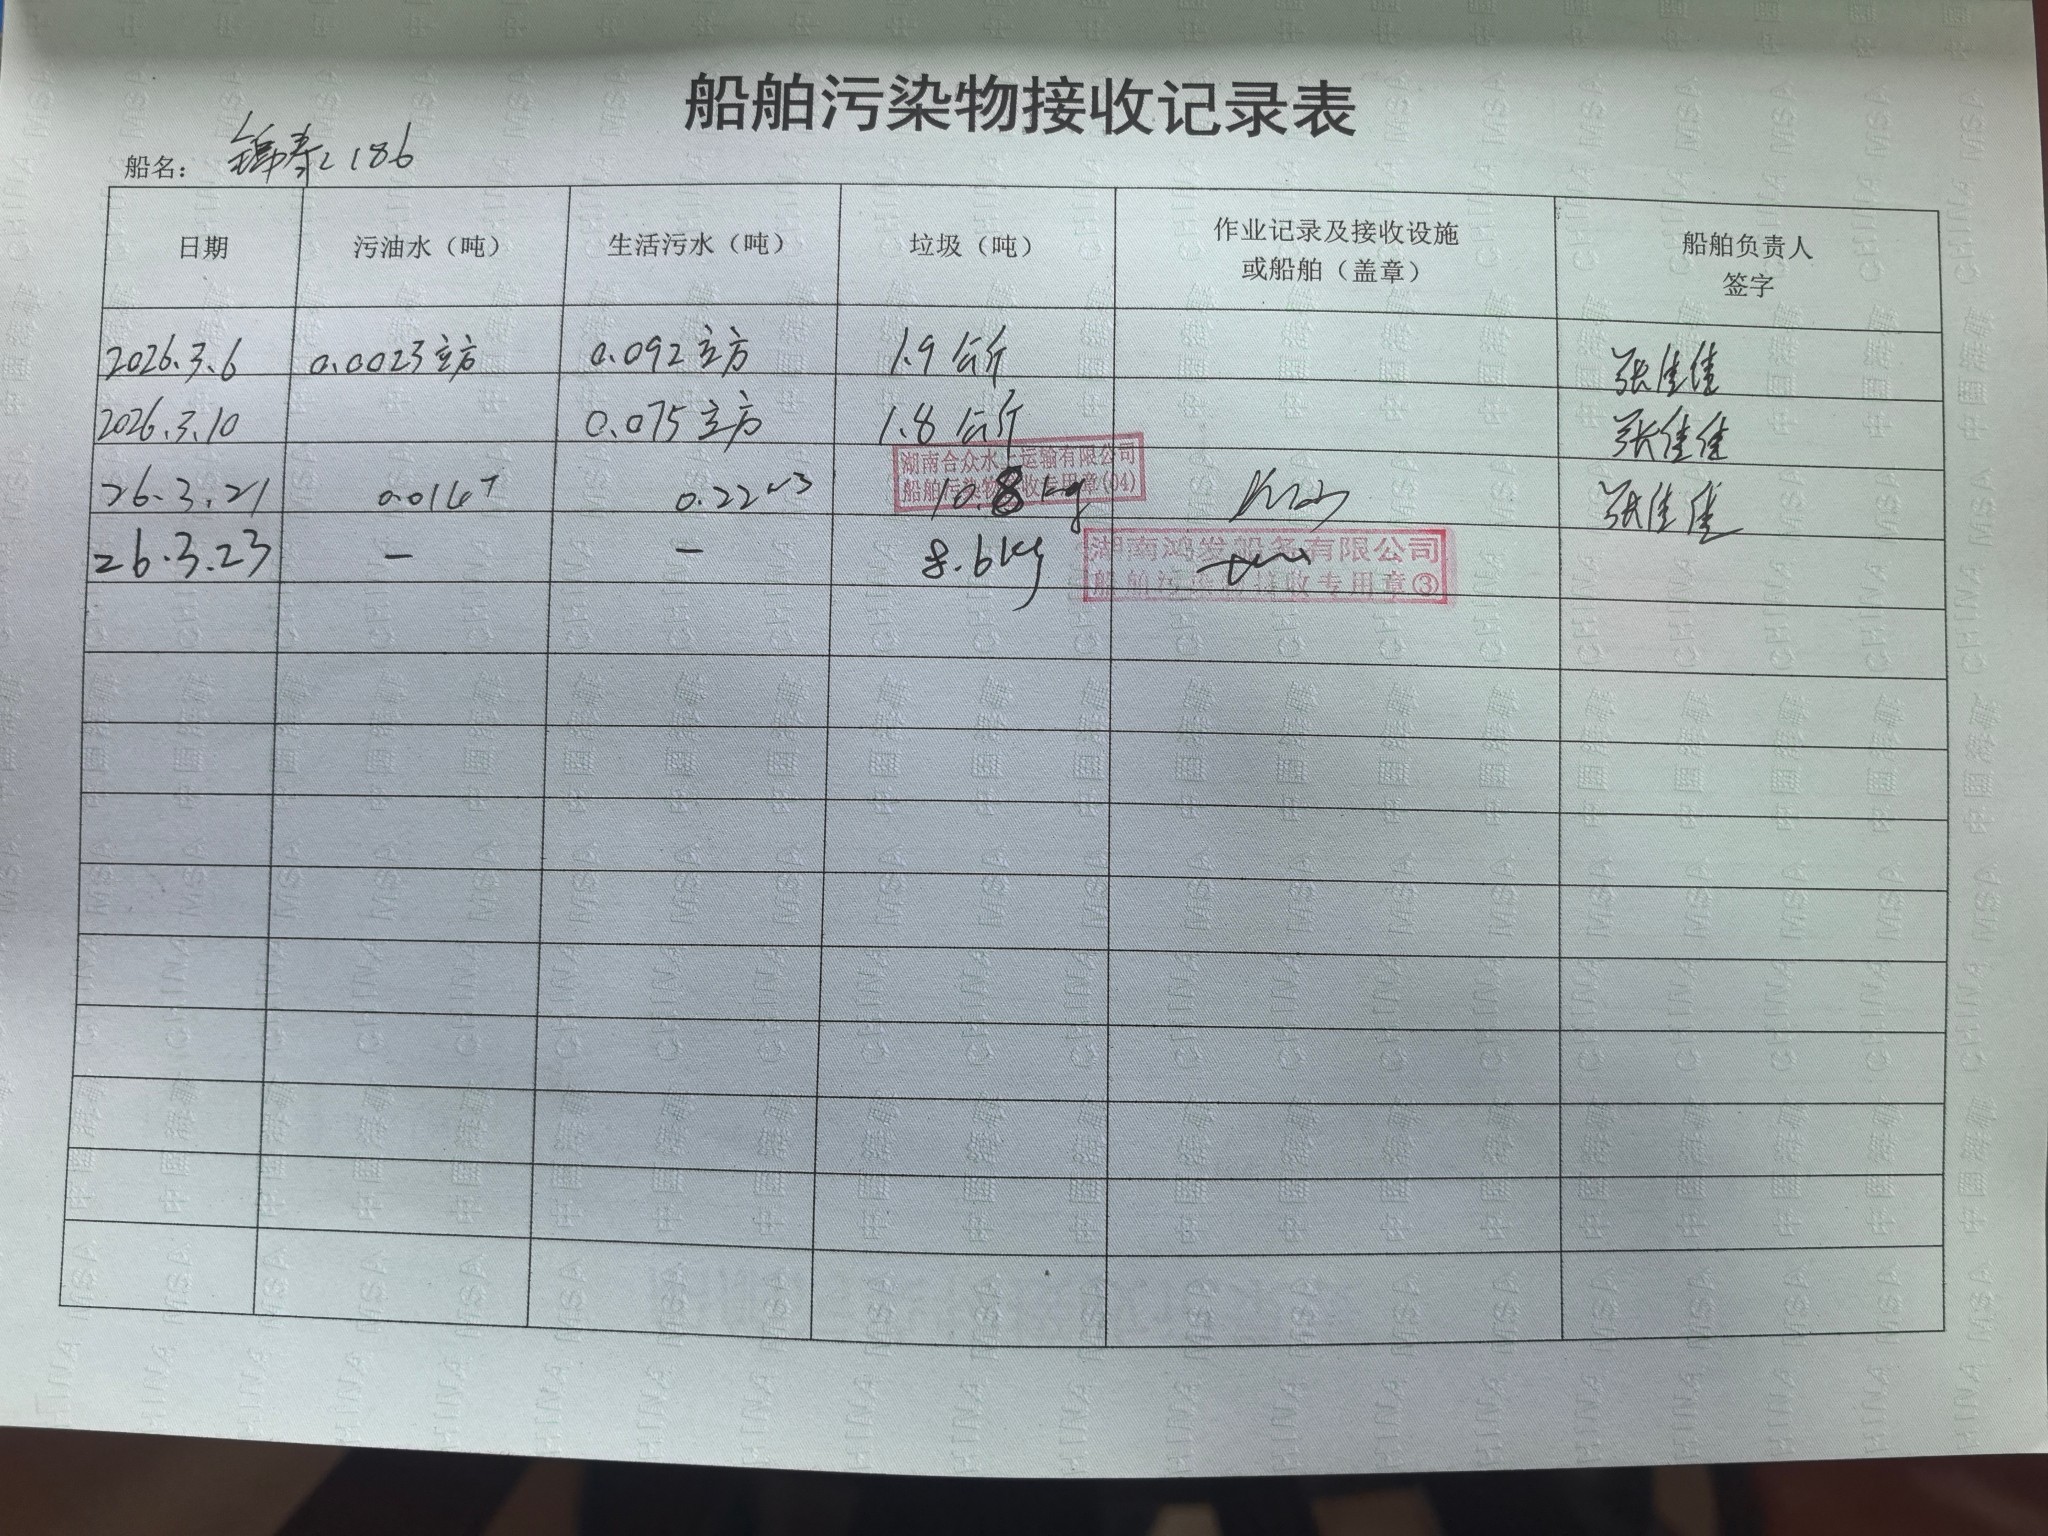 船舶污染物接收记录表
船名： 锦泰2186
日期 污油水（吨） 生活污水（吨） 垃圾（吨） 作业记录及接收设施或船舶（盖章） 船舶负责人签字
2026.3.6 0.0023立方 0.092立方 1.9公斤 张佳佳
2026.3.10 0.075立方 1.8公斤 张佳佳
湖南合众水上运输有限公司
船舶污染物接收专用章(04)
26.3.21 0.014T 0.22m3 10.8kg 张佳佳
26.3.23 — — 8.6kg
湖南鸿发船务有限公司
船舶污染物接收专用章③